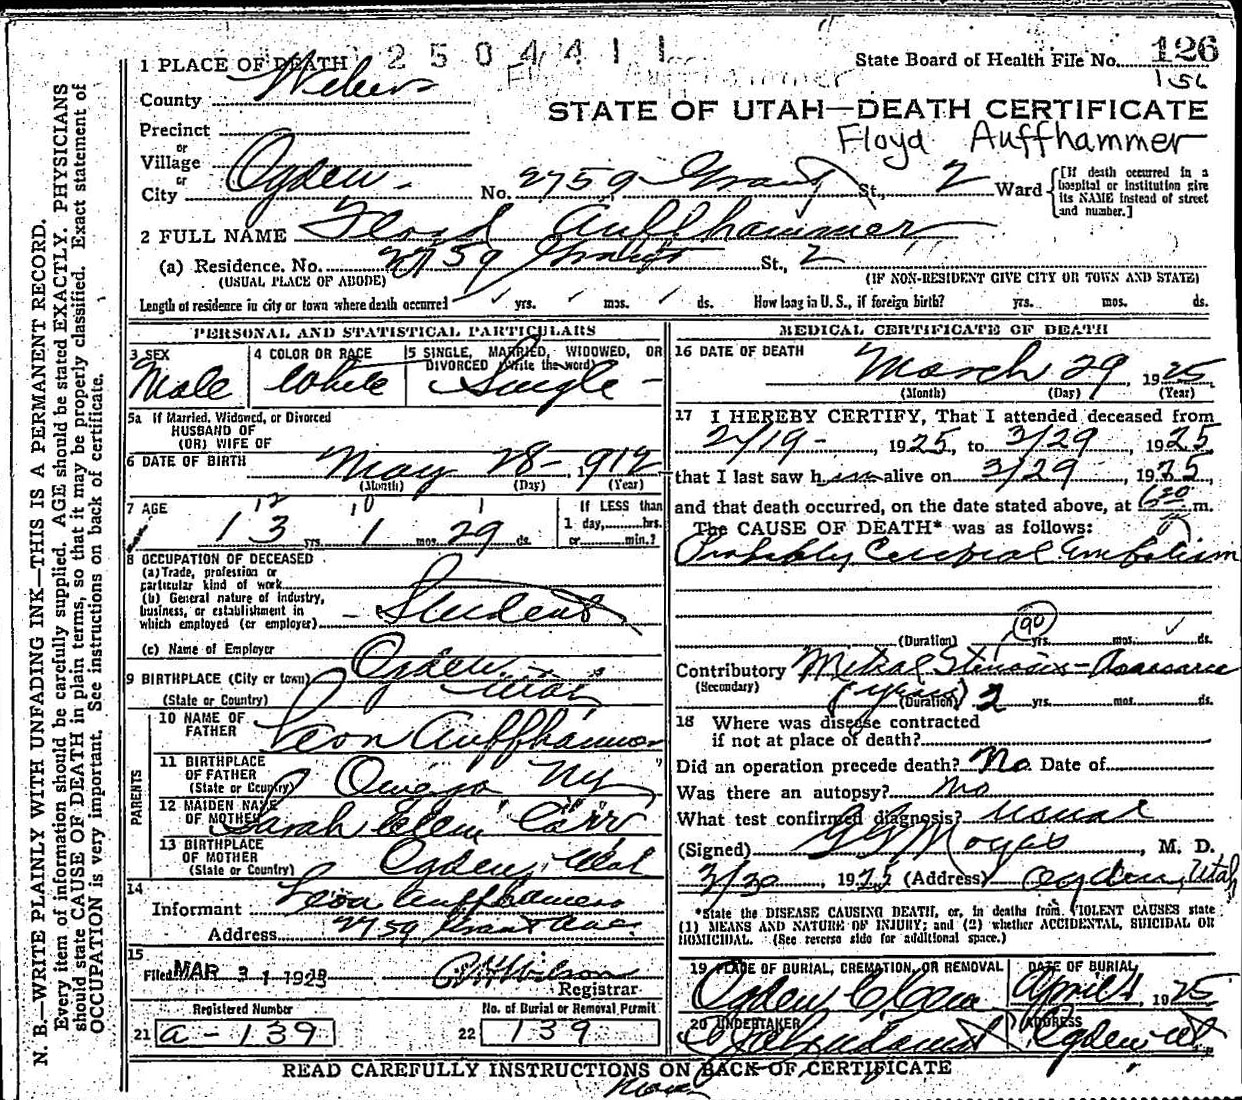 1 PLACE OF DEATH 2504411
State Board of Health File No. 126
156
County Weber
STATE OF UTAH—DEATH CERTIFICATE
Floyd Auffhammer
Precinct
or
Village
or
City Ogden No. 2759 Grant St., 2 Ward
[If death occurred in a hospital or institution give its NAME instead of street and number.]
2 FULL NAME Floyd Auffhammer
(a) Residence. No. 2759 Grant St., 2
(USUAL PLACE OF ABODE) (IF NON-RESIDENT GIVE CITY OR TOWN AND STATE)
Length of residence in city or town where death occurred yrs. mos. ds. How long in U. S., if foreign birth? yrs. mos. ds.
PERSONAL AND STATISTICAL PARTICULARS
3 SEX 4 COLOR OR RACE 5 SINGLE, MARRIED, WIDOWED, OR
DIVORCED (write the word)
Male White Single
5a If Married, Widowed, or Divorced
HUSBAND OF
(OR) WIFE OF
6 DATE OF BIRTH May 28-, 1912
(Month) (Day) (Year)
7 AGE 12 10 1
13 yrs. 1 mos. 29 ds.
If LESS than
1 day, hrs.
or min.?
8 OCCUPATION OF DECEASED
(a) Trade, profession or
particular kind of work
(b) General nature of industry,
business, or establishment in
which employed (or employer) Student
(c) Name of Employer
9 BIRTHPLACE (City or town) Ogden
(State or Country) Utah
PARENTS
10 NAME OF
FATHER Leon Auffhammer
11 BIRTHPLACE
OF FATHER
(State or Country) NY
12 MAIDEN NAME
OF MOTHER Sarah Carr
13 BIRTHPLACE
OF MOTHER
(State or Country) Ogden, Utah
14
Informant Leon Auffhammer
Address 2759 Grant Ave.
15
Filed MAR 31 Wilson
Registrar
Registered Number No. of Burial or Removal Permit
21 a-139 22 139
MEDICAL CERTIFICATE OF DEATH
16 DATE OF DEATH
March 29, 1925
(Month) (Day) (Year)
17 I HEREBY CERTIFY, That I attended deceased from
2/19-, 1925, to 3/29, 1925
that I last saw h alive on 3/29, 1925,
and that death occurred, on the date stated above, at m.
The CAUSE OF DEATH* was as follows:
Probably Cerebral Embolism
90
(Duration) yrs. mos. ds.
Contributory Mitral Stenosis
(Secondary) (years) (Duration) 2 yrs. mos. ds.
18 Where was disease contracted
if not at place of death?
Did an operation precede death? No Date of
Was there an autopsy? no
What test confirmed diagnosis? usual
(Signed) Moyes, M. D.
3/30, 19 (Address) Ogden, Utah
*State the DISEASE CAUSING DEATH, or, in deaths from VIOLENT CAUSES state
(1) MEANS AND NATURE OF INJURY; and (2) whether ACCIDENTAL, SUICIDAL OR
HOMICIDAL. (See reverse side for additional space.)
19 PLACE OF BURIAL, CREMATION, OR REMOVAL DATE OF BURIAL
Ogden April 1, 1925
20 UNDERTAKER ADDRESS
Ogden Ut
READ CAREFULLY INSTRUCTIONS ON BACK OF CERTIFICATE
N. B.—WRITE PLAINLY WITH UNFADING INK—THIS IS A PERMANENT RECORD.
Every item of information should be carefully supplied. AGE should be stated EXACTLY. PHYSICIANS
should state CAUSE OF DEATH in plain terms, so that it may be properly classified. Exact statement of
OCCUPATION is very important. See instructions on back of certificate.